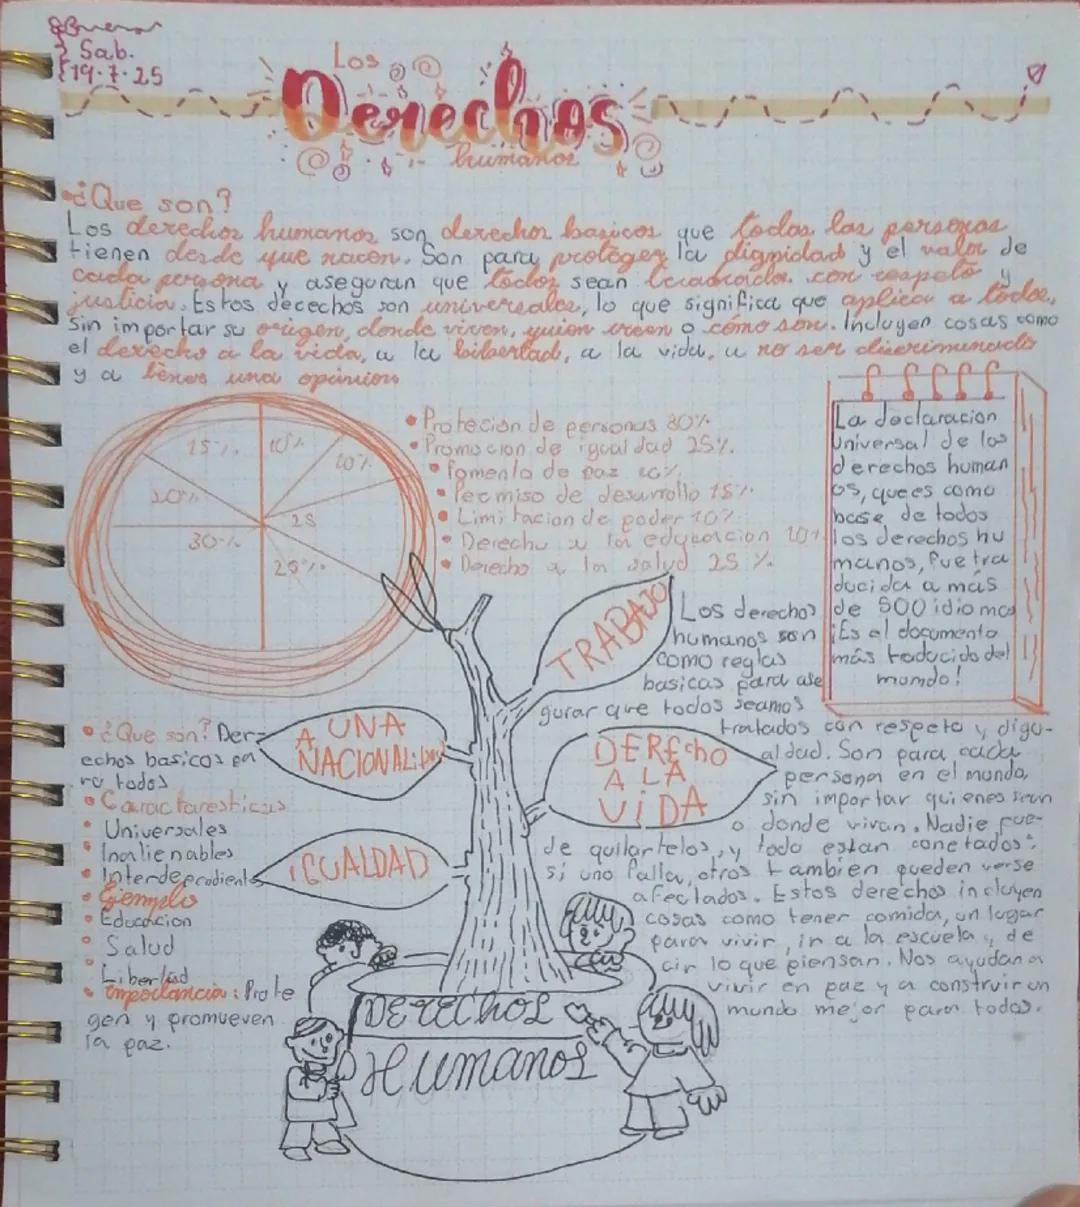 Sab.
19.7.25
Los
Derechos
humanos
•¿Que son?
Los derechos humanos son derechos basicos que todas las personas
tienen desde que nacen. Son para proteger la dignidad y el valor de
cada persona y aseguran que todos sean tratados con respeto y
justicia. Estos decechos son universales, lo que significa que aplica a todos,
Sin importar su origen, donde viven, quien creen o cómo son. Incluyen cosas como
el derecho a la vida, a la libertad, a la vida, a no ser discriminado
y a tener una opinion
15%.
10%
10%
20%
25
30%
25%.
• Proteción de personas 30%
• Promocion de igualdad 25%.
• fomento de paz 20%
• Permiso de desarrollo 15%.
• Limitacion de poder 10%
• Derecho a la educacion 10%
• Derecho a la salud 25%.
La declaracion
Universal de los
derechos human
os, que es como
base de todos
los derechos hu
manos, fue tra
ducida a más
de 500 idiomas
¡Es el documento
más traducido del
mundo!
TRABAJO
A UNA
NACIONALidad
DERECho
A LA
ViDA
iGUALDAD
Los derechos
humanos son
como reglas
basicas para ase
gurar que todos seamos
tratados con respeto y digu-
aldad. Son para cada
persona en el mundo,
sin importar quienes sean
o donde vivan. Nadie pue-
de quitartelos, y todo estan conetados:
si uno falla, otros tambien pueden verse
afectados. Estos derechos incluyen
cosas como tener comida, un lugar
para vivir, ir a la escuela y de
cir lo que piensan. Nos ayudan a
vivir en paz y a construir un
mundo mejor para todos.
•¿Que son? Der-
echos basicos pa
ra todos
• Caractaresticas
• Universales
• Inalienables
• Interdependientes
• Ejemplo
• Educacion
• Salud
• Libertad
• importancia: Prote
gen y promueven
la paz.
DERECHOS
Humanos